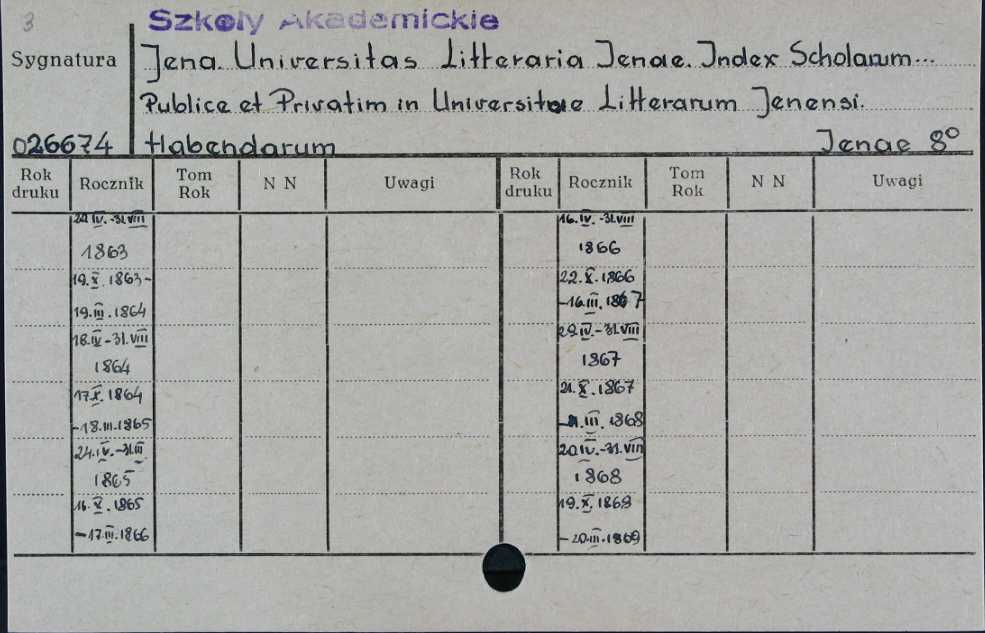 3
Szkoły Akademickie
Sygnatura
Jena. Universitas Litteraria Jenae. Index Scholarum...
Publice et Privatim in Universitae Litterarum Jenensi.
026674
Habendarum
Jenae 8°
Rok druku Rocznik Tom Rok N N Uwagi Rok druku Rocznik Tom Rok N N Uwagi
.IV.-31.VIII
1863
19.X.1863-
19.III.1864
18.IV-31.VIII
1864
17.X.1864
-18.III.1865
24.IV.-31.III
1865
16.X.1865
-17.III.1866
16.IV.-31.VIII
1866
22.X.1866
-16.III.1867
29.IV.-31.VIII
1867
21.X.1867
.III.1868
20.IV.-31.VIII
1868
19.X.1868
-20.III.1869